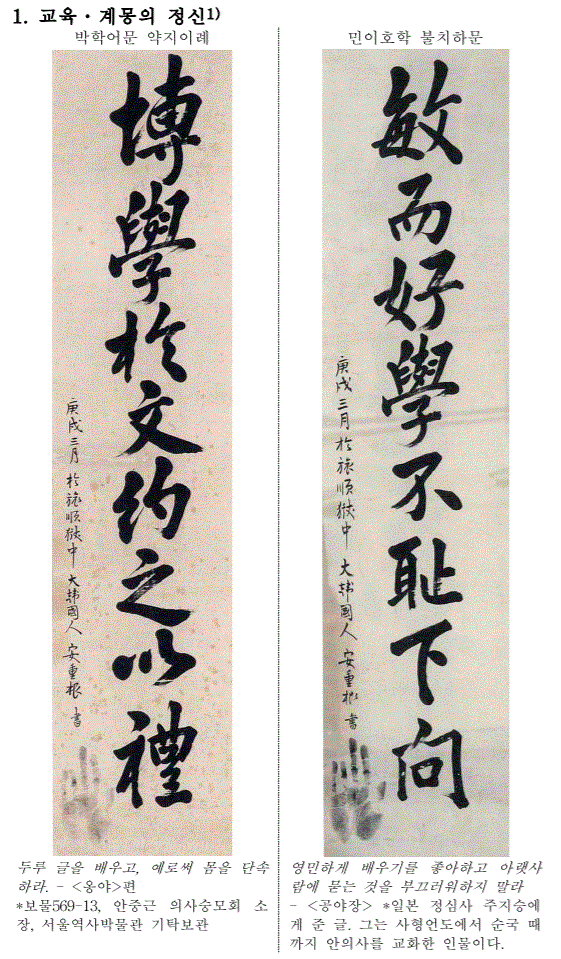 1. 교육·계몽의 정신1)
박학어문 약지이례
博學於文約之以禮
庚戌三月 於旅順獄中 大韓國人 安重根 書
두루 글을 배우고, 예로써 몸을 단속
하라. - <옹야>편
*보물569-13, 안중근 의사숭모회 소
장, 서울역사박물관 기탁보관
민이호학 불치하문
敏而好學不耻下問
庚戌三月 於旅順獄中 大韓國人 安重根 書
영민하게 배우기를 좋아하고 아랫사
람에 묻는 것을 부끄러워하지 말라
- <공야장> *일본 정심사 주지승에
게 준 글. 그는 사형언도에서 순국 때
까지 안의사를 교화한 인물이다.